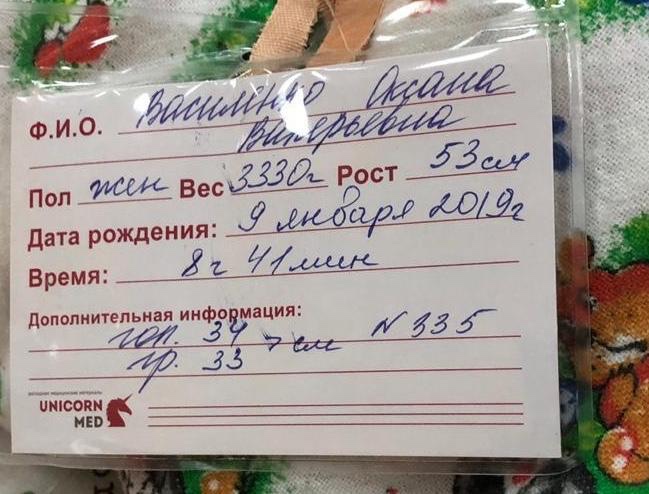 Ф.И.О. Василенко Оксана
Валерьевна
Пол жен Вес 3330г Рост 53см
Дата рождения: 9 января 2019г
Время: 8ч 41мин
Дополнительная информация:
гол. 34 см N 335
гр. 33
UNICORN
MED